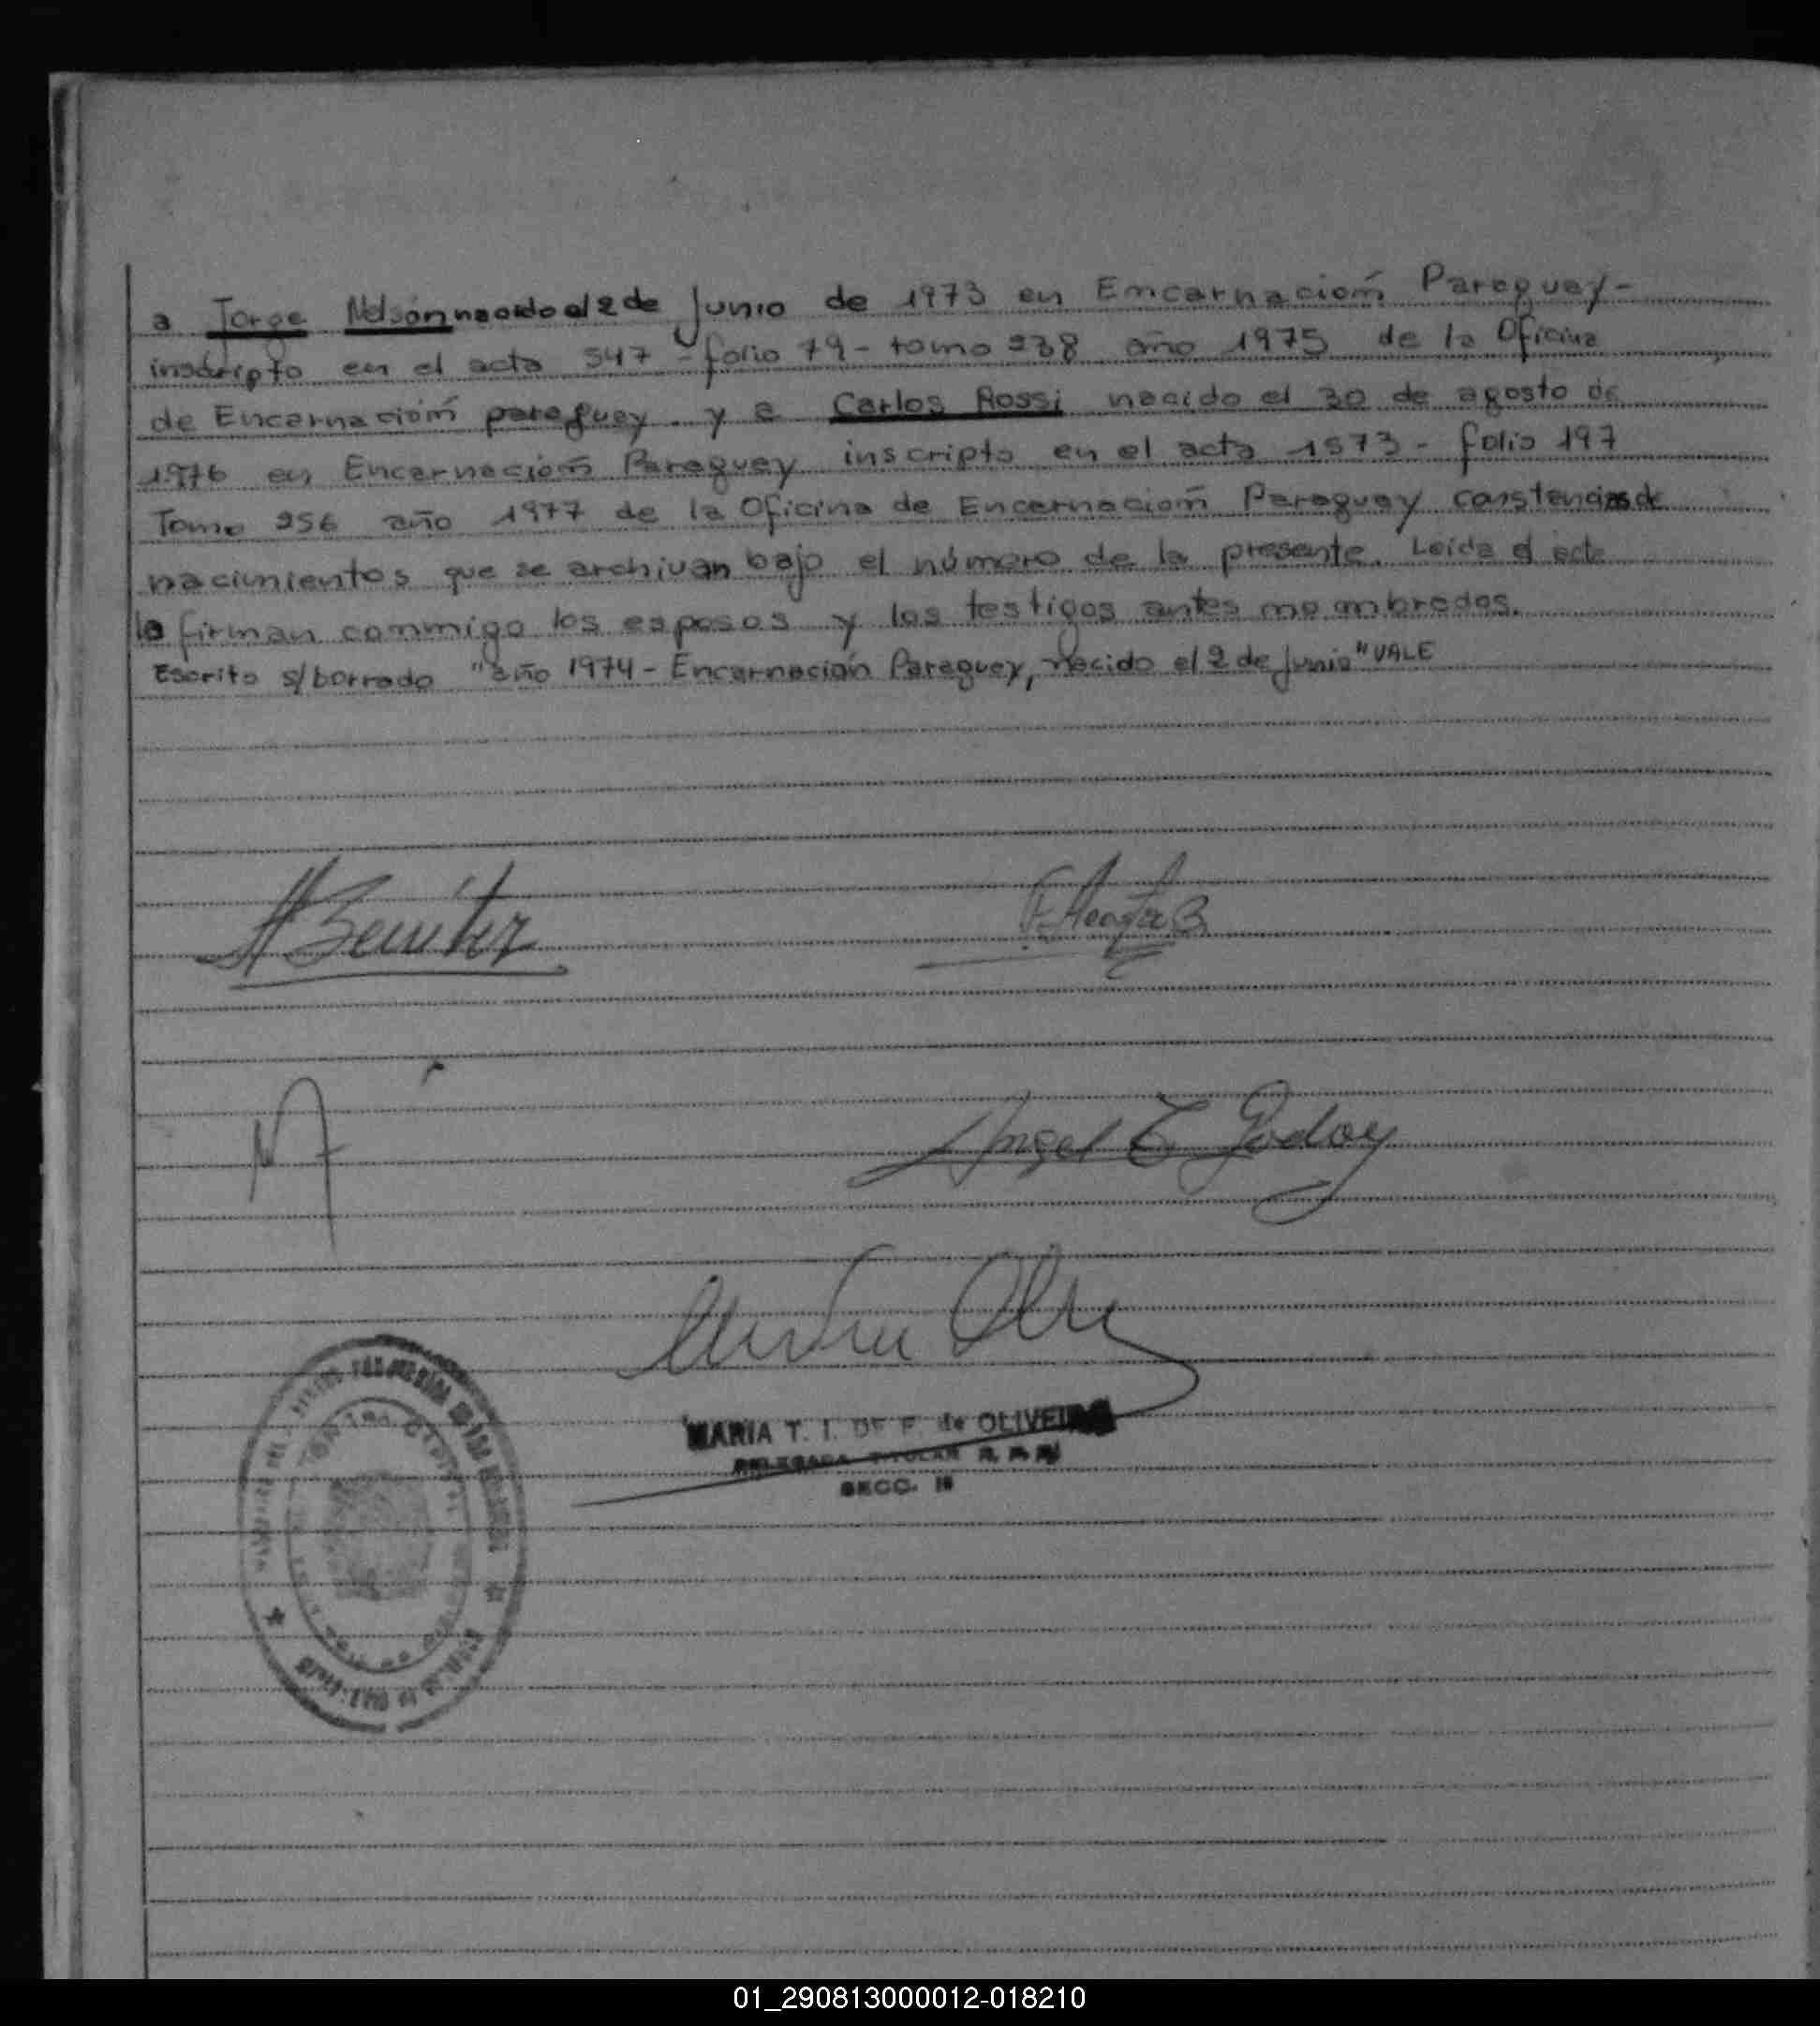 a Jorge Nelson nacido el 2 de Junio de 1973 en Encarnación Paraguay-
inscripto en el acta 547 - folio 79 - tomo 238 año 1975 de la Oficina
de Encarnación paraguay y a Carlos Rossi nacido el 30 de agosto de
1976 en Encarnación Paraguay inscripto en el acta 1573 - folio 197
Tomo 256 año 1977 de la Oficina de Encarnación Paraguay constancias de
nacimientos que se archivan bajo el número de la presente. Leída el acta
la firman conmigo los esposos y los testigos antes nombrados.
Escrito s/borrado "año 1974 - Encarnación Paraguay, nacido el 2 de Junio" VALE
Angel Godoy
MARIA T. I. DE F. de OLIVEIRA
DELEGADA TITULAR
SECC.
01_290813000012-018210